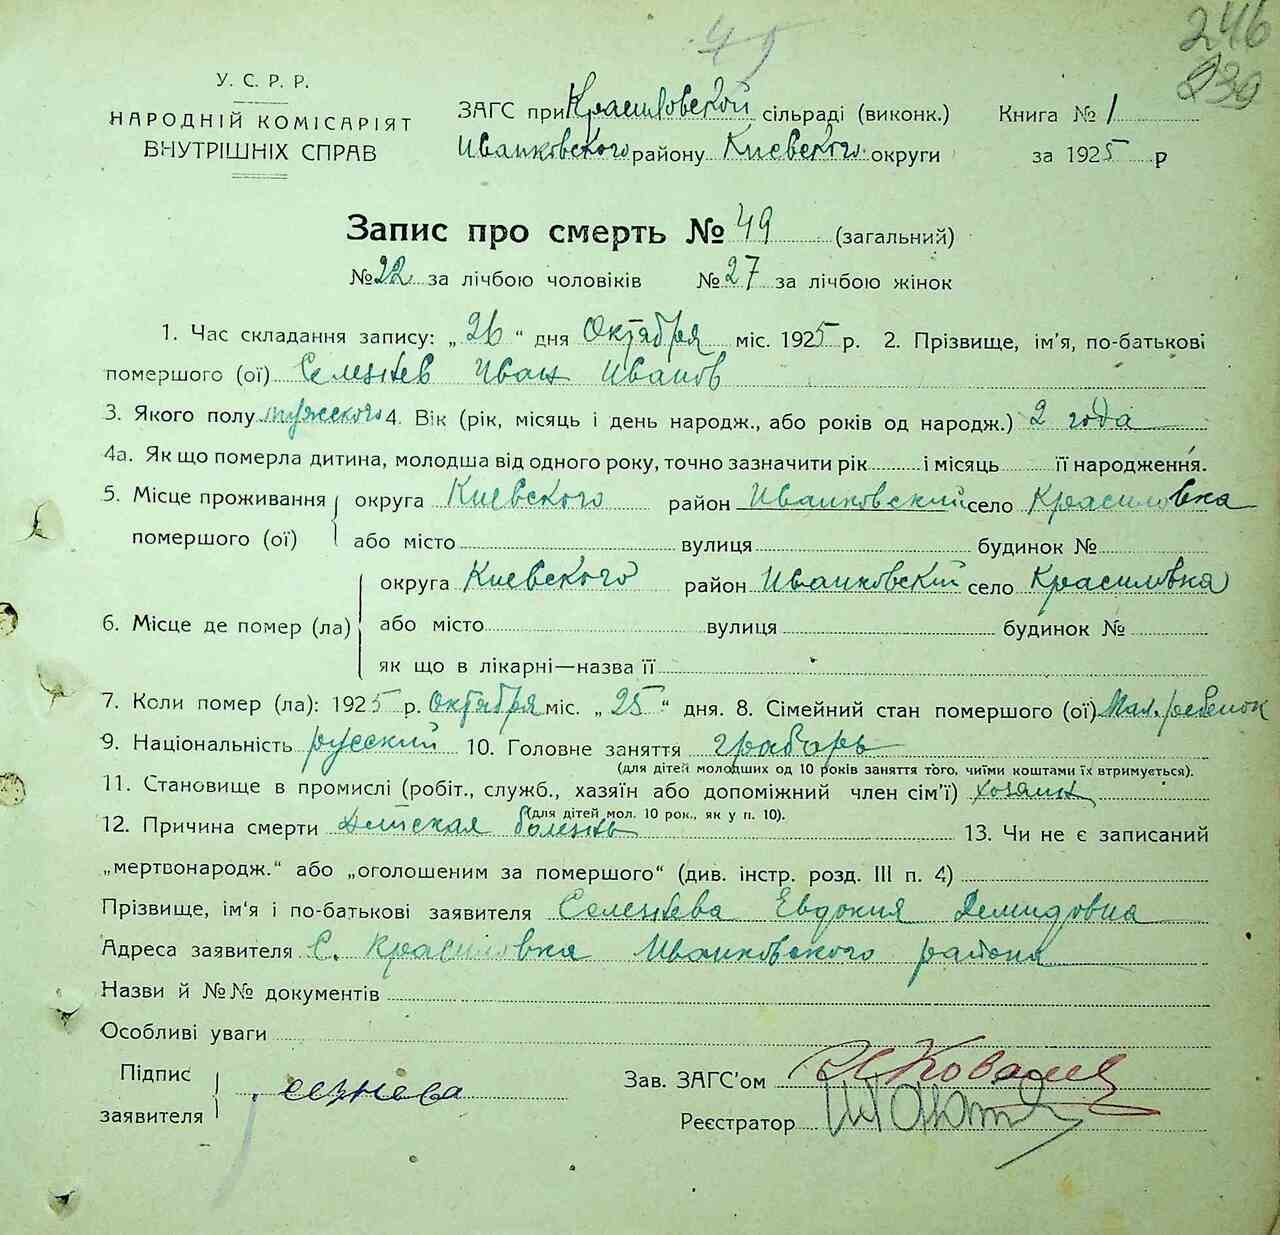 49
246
239
У. С. Р. Р.
НАРОДНІЙ КОМІСАРІЯТ
ВНУТРІШНІХ СПРАВ
ЗАГС при Красиловской сільраді (виконк.)
Иванковского району Киевского округи
Книга № 1
за 1925 р
Запис про смерть № 49 (загальний)
№ 22 за лічбою чоловіків № 27 за лічбою жінок
1. Час складання запису: „26“ дня Октября міс. 1925 р. 2. Прізвище, ім'я, по-батькові
помершого (ої) Селезнев Иван Иванов
3. Якого полу мужского 4. Вік (рік, місяць і день народж., або років од народж.) 2 года
4а. Як що померла дитина, молодша від одного року, точно зазначити рік і місяць її народження.
5. Місце проживання округа Киевского район Иванковский село Красиловка
помершого (ої) або місто вулиця будинок №
округа Киевского район Иванковский село Красиловка
6. Місце де помер (ла) або місто вулиця будинок №
як що в лікарні—назва її
7. Коли помер (ла): 1925 р. Октября міс. „25“ дня. 8. Сімейний стан помершого (ої) Мал. ребенок
9. Національність русский 10. Головне заняття грабарь
(для дітей молодших од 10 років заняття того, чиїми коштами їх втримується).
11. Становище в промислі (робіт., служб., хазяїн або допоміжний член сім'ї) хозяин
(для дітей мол. 10 рок., як у п. 10).
12. Причина смерти Детская болезнь 13. Чи не є записаний
„мертвонародж.“ або „оголошеним за помершого“ (див. інстр. розд. III п. 4)
Прізвище, ім'я і по-батькові заявителя Селезнева Евдокия Демидовна
Адреса заявителя С. Красиловка Иванковского района
Назви й №№ документів
Особливі уваги
Підпис
заявителя
Зав. ЗАГС'ом
Реєстратор